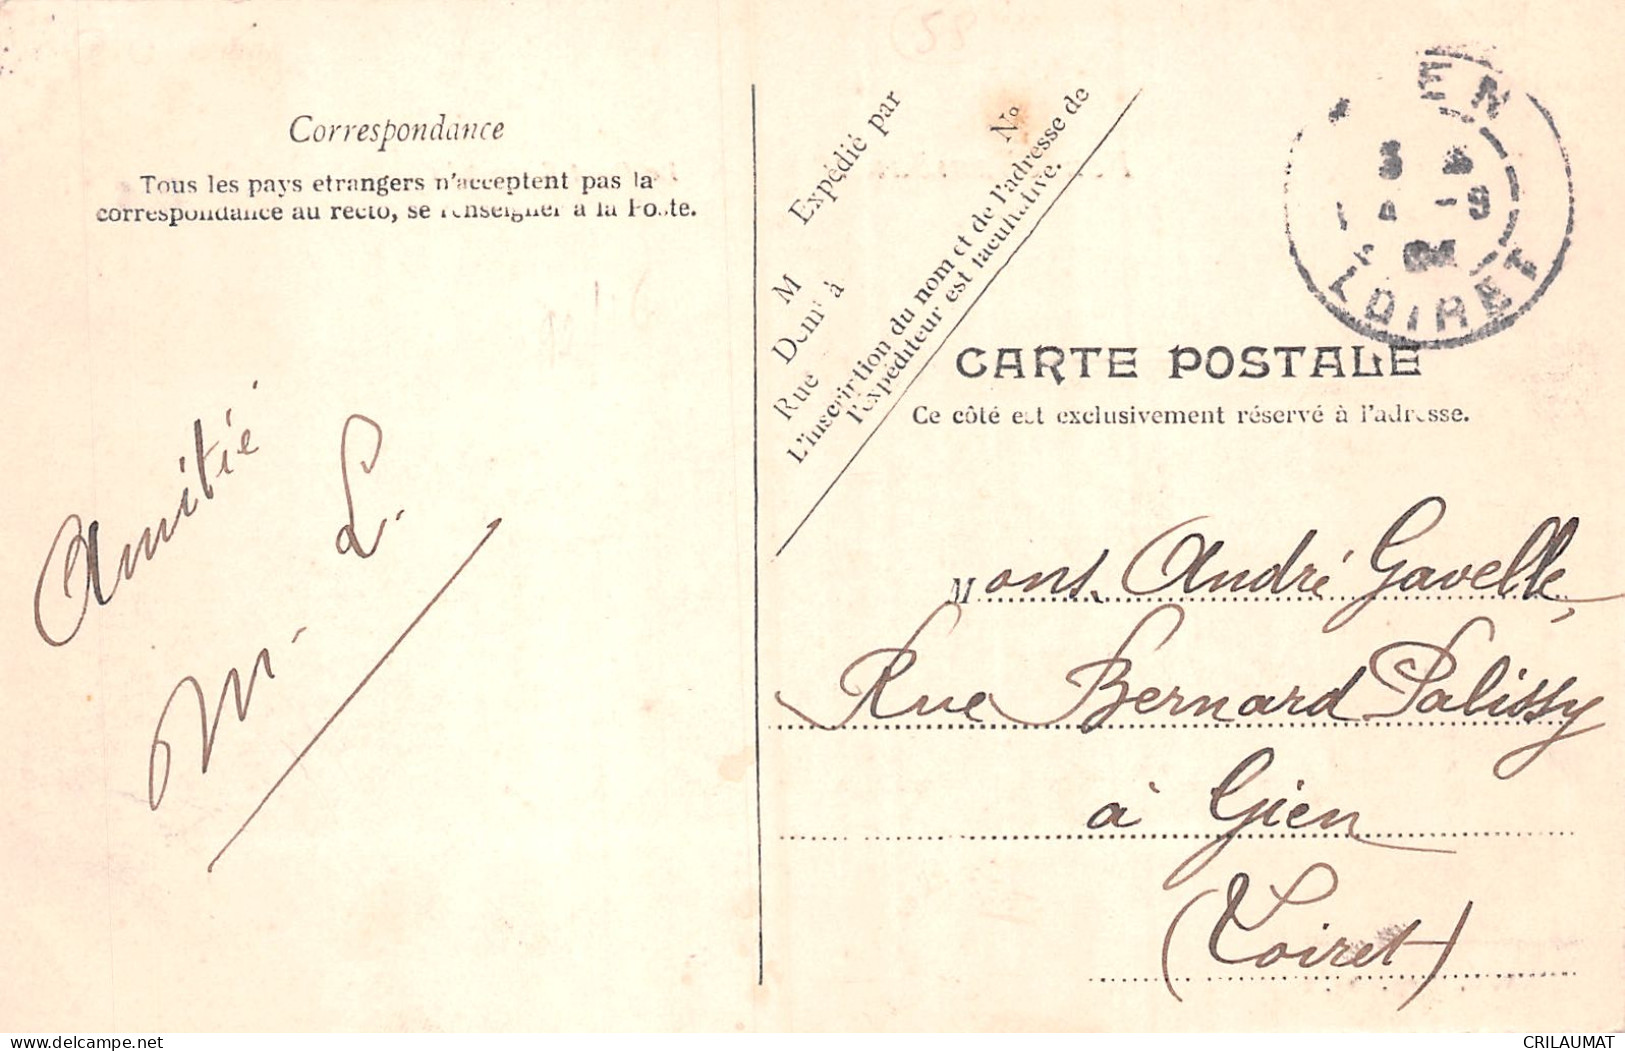 58
Correspondance
Tous les pays etrangers n'acceptent pas la
correspondance au recto, se renseigner à la Poste.
Amitié
M. L.
Expédié par
M
Demt à
Rue
No
L'inscription du nom et de l'adresse de
l'expéditeur est facultative.
EN
4 -9
LOIRET
CARTE POSTALE
Ce côté est exclusivement réservé à l'adresse.
Mons. André Gavelle,
Rue Bernard Palissy
à Gien
(Loiret)
www.delcampe.net
CRILAUMAT